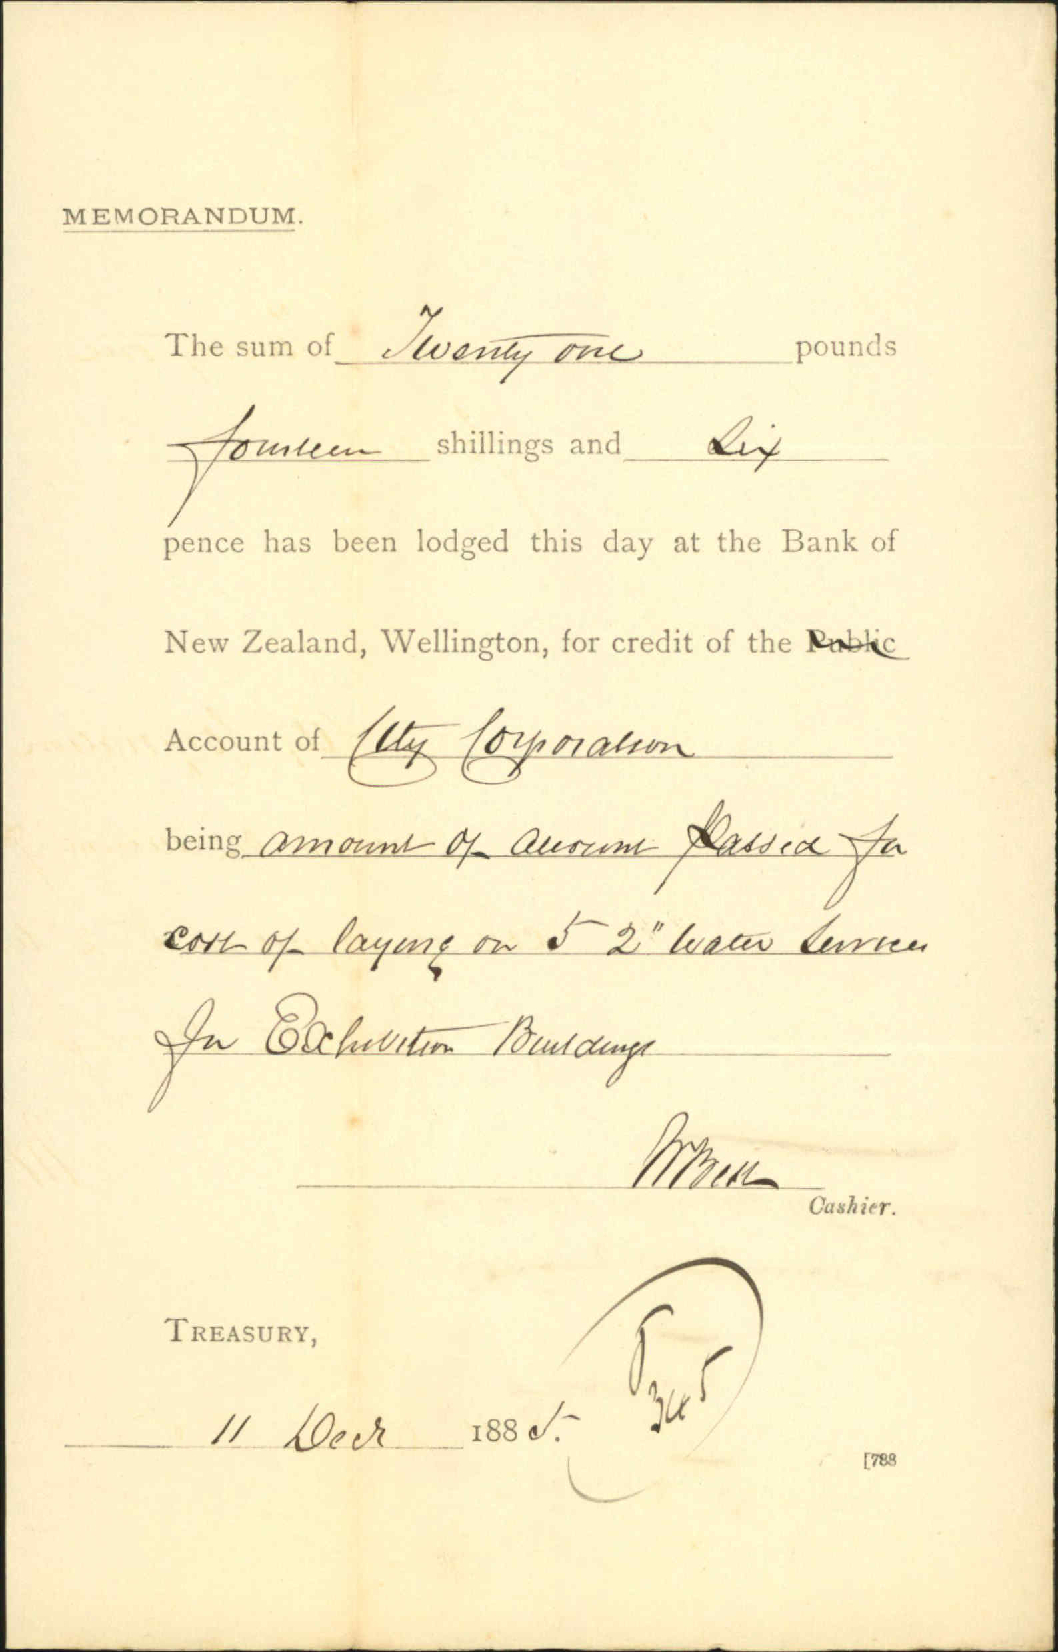 MEMORANDUM.
The sum of Twenty one pounds
fourteen shillings and Six
pence has been lodged this day at the Bank of
New Zealand, Wellington, for credit of the Public
Account of City Corporation
being amount of account passed for
cost of laying on 5 2" Water Services
for Exhibition Buildings
Cashier.
TREASURY,
11 Decr 1885.
345
[788